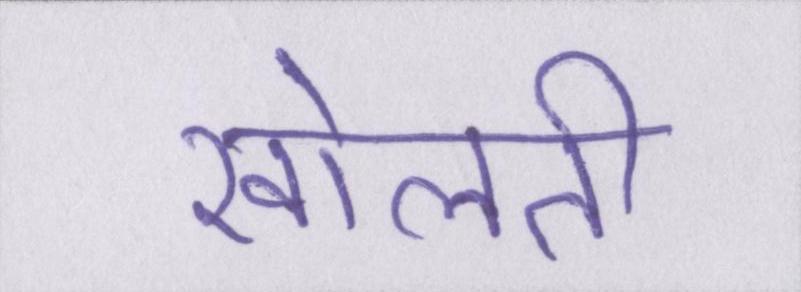 खोलती